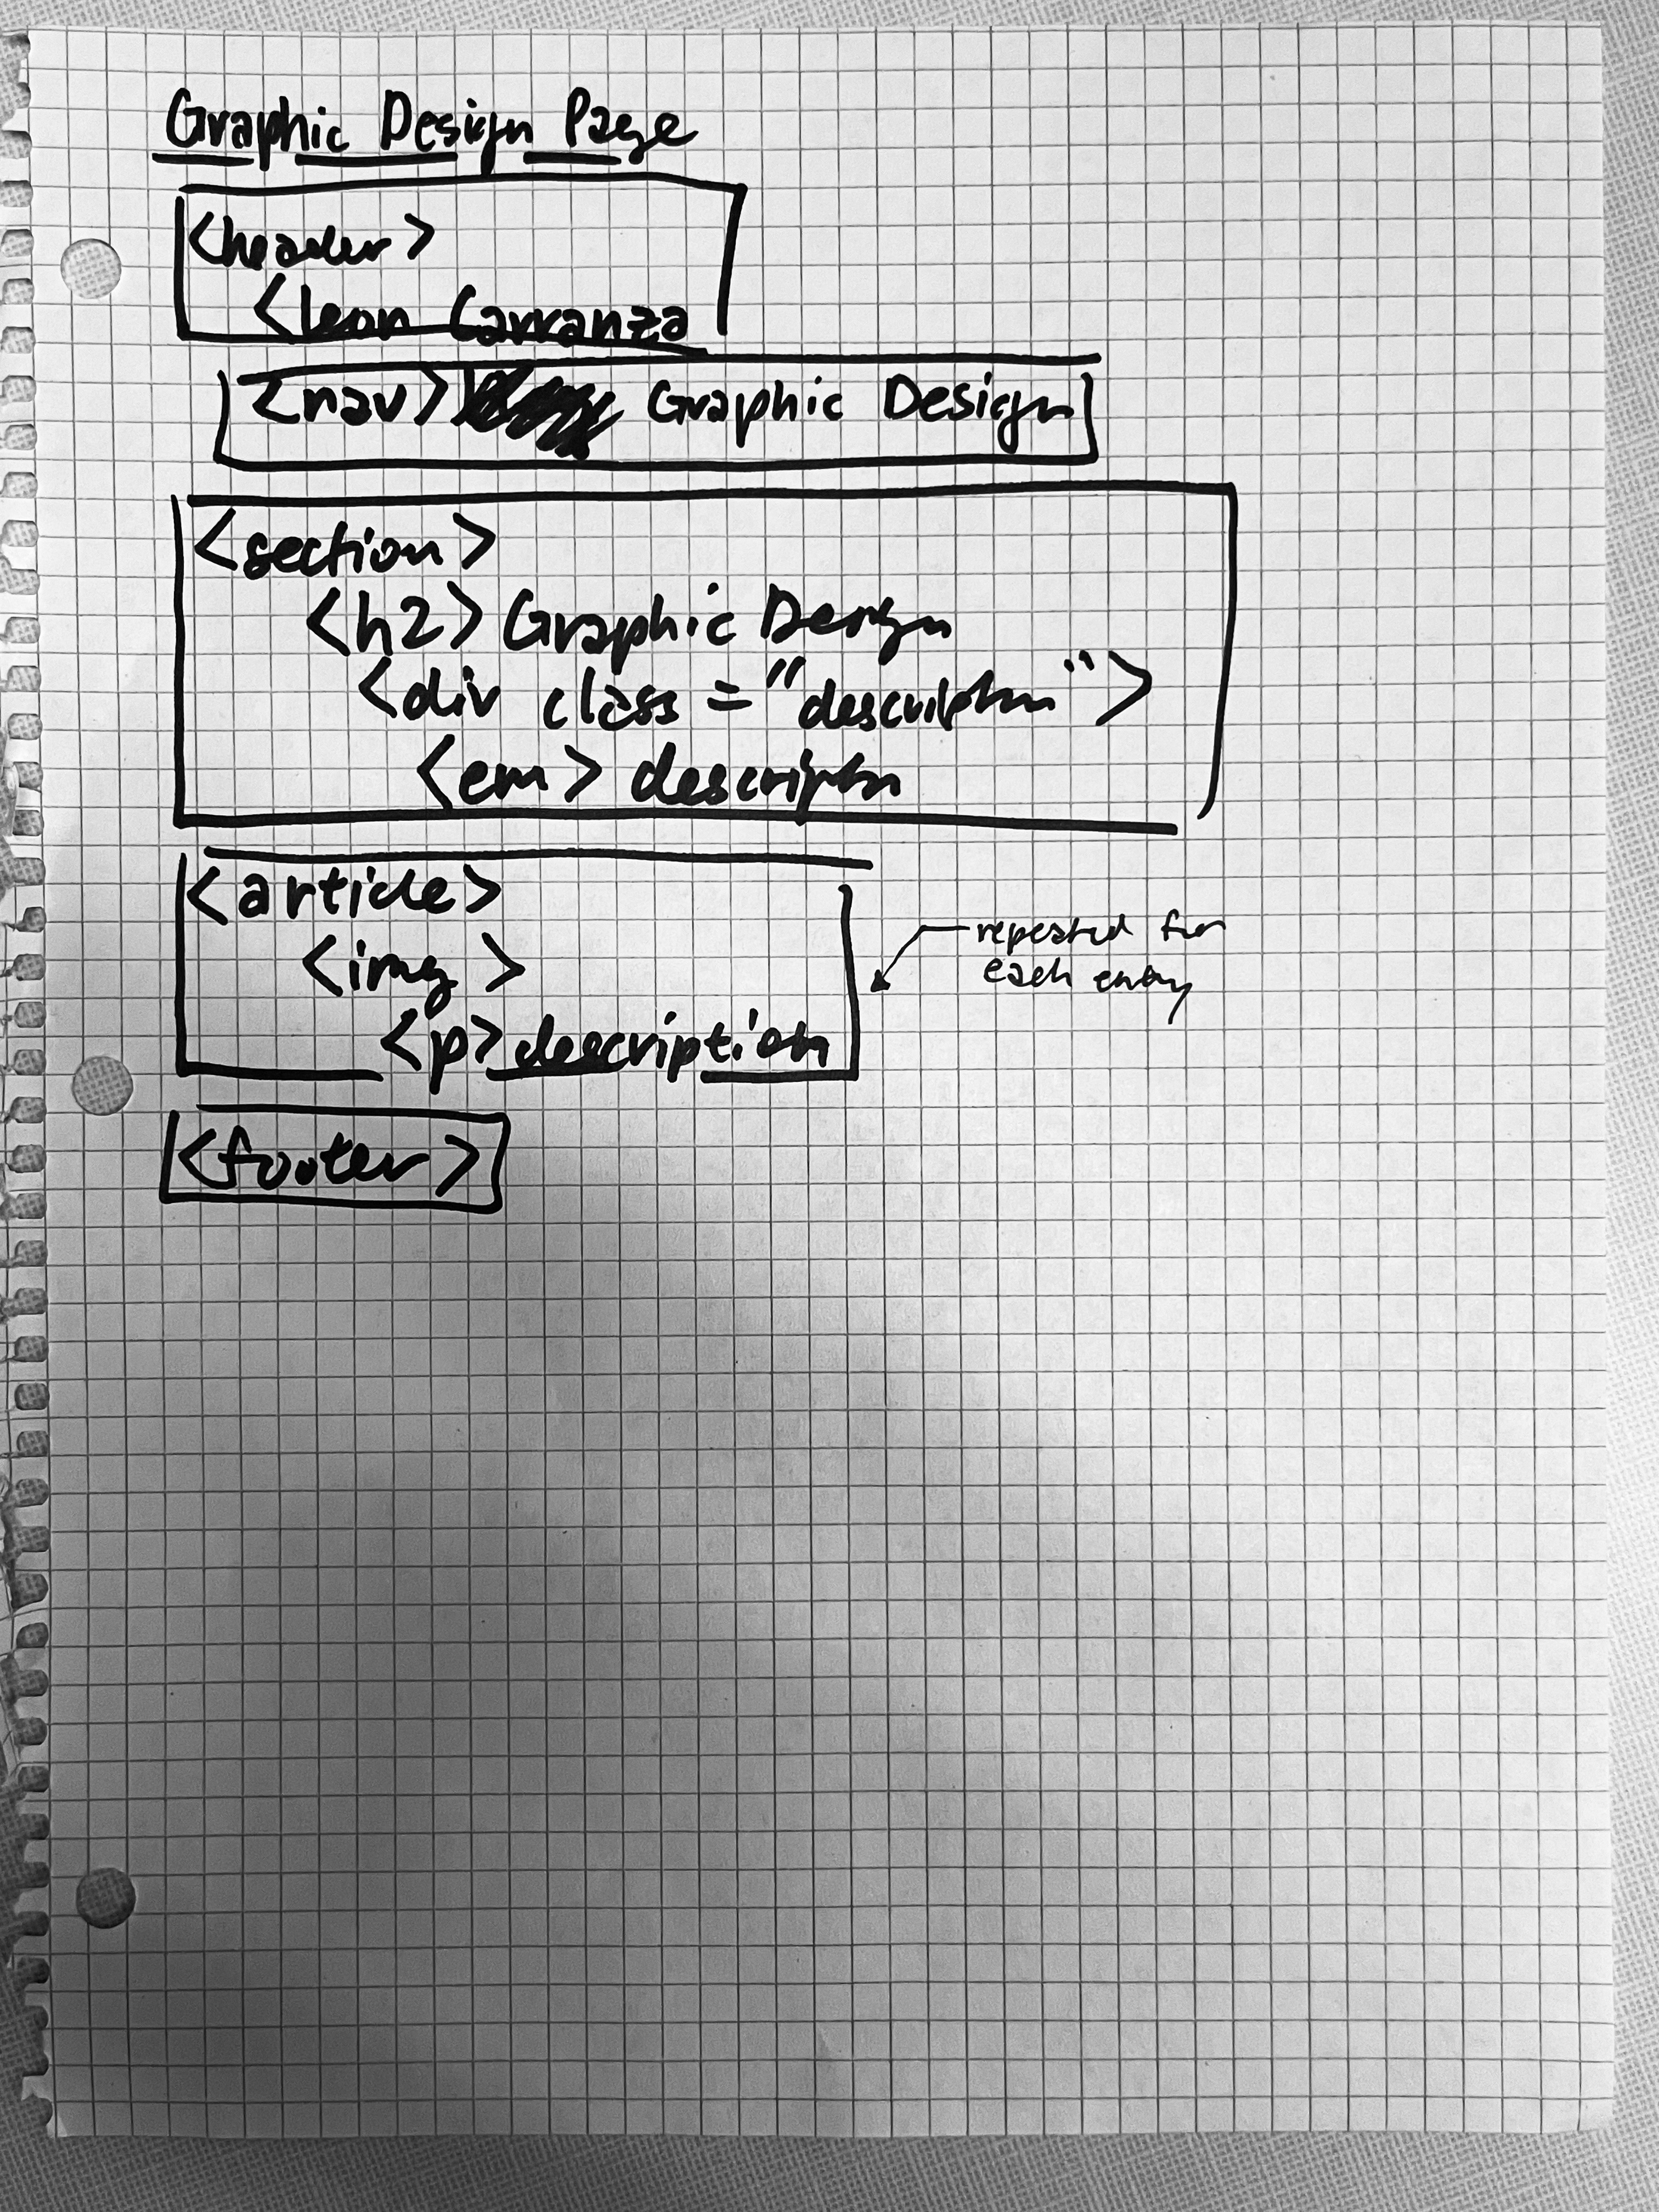 Graphic Design Page
<header>
<leon Carranza
<nav> Graphic Design
<section>
<h2> Graphic Design
<div class = "description">
<em> description
<article>
<img>
<p> description
repeated for
each entry
<footer>